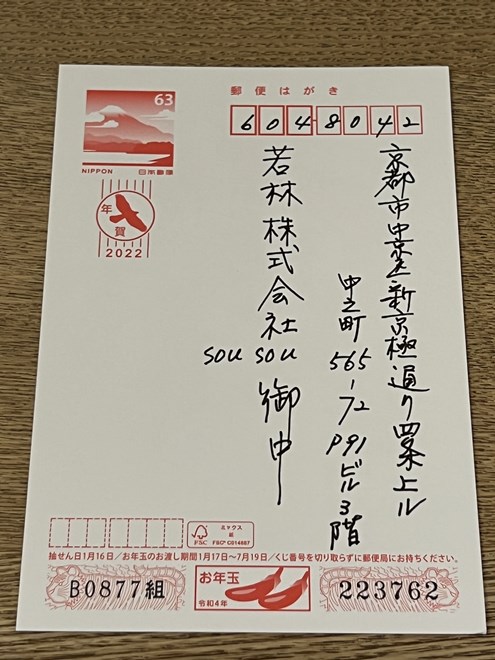 郵便はがき
604-8042
京都市中京区新京極通り四条上ル
中之町565-72 P91ビル3階
若林株式会社
SOU SOU 御中
63
NIPPON 日本郵便
年賀
2022
ミックス
紙
FSC
FSC® C014687
抽せん日1月16日／お年玉のお渡し期間1月17日～7月19日／くじ番号を切り取らずに郵便局にお持ちください。
B0877組
お年玉
令和4年
223762